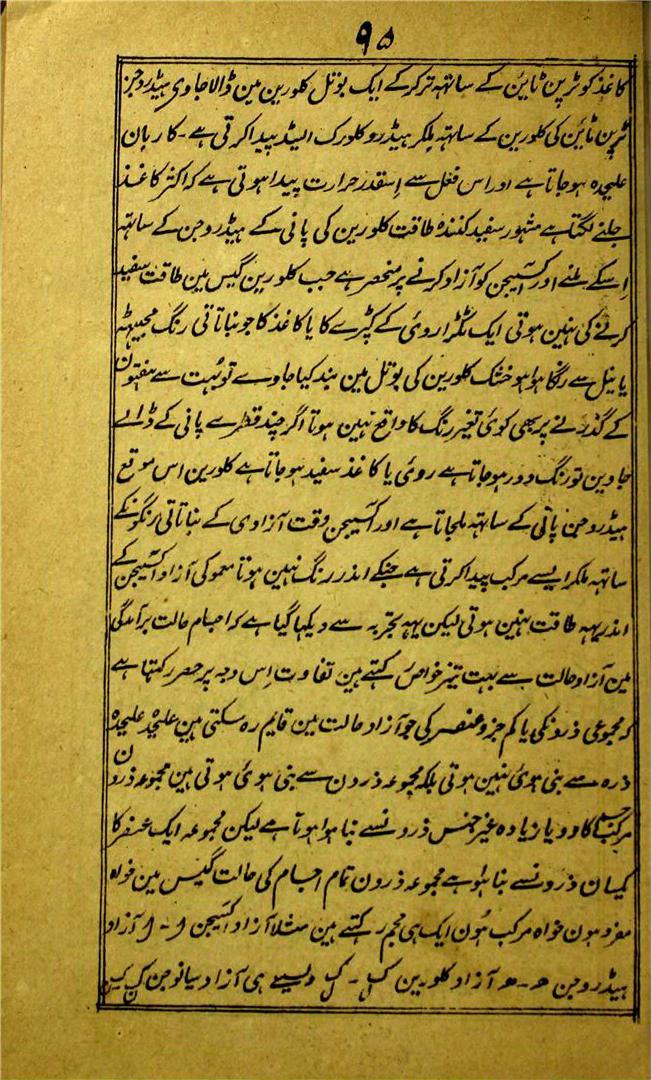 ۹۵
کاغذ کو ٹرپن ٹاین کے ساتھہ تر کر کے ایک بوتل کلورین مین ڈالا جاوی ہیڈروجن
ٹرپن ٹاین کی کلورین کے ساتھہ ملکر ہیڈروکلورک ایسڈ پیدا کرتی ہے ۔ کاربان
علیحدہ ہو جاتا ہے اور اس فعل سے اِسقدر حرارت پیدا ہوتی ہے کہ اکثر کاغذ
جلنے لگتا ہے مشہور سفید کنندہ طاقت کلورین کی پانی کے ہیڈروجن کے ساتھہ
اِسکے ملنے اور اکسیجن کو آزاد کرنے پر منحصر ہے جب کلورین گیس مین طاقت سفید
کرنے کی نہین ہوتی ایک ٹکڑا روئی کے کپڑے کا یا کاغذ کا جو نباتاتی رنگ مجیٹھہ
یا نیل سے رنگا ہوا ہو خشک کلورین کی بوتل مین بند کیا جاوے تو بہت سے ہفتون
کے گذرنے پر بھی کوئی تغیر رنگ کا واقع نہین ہوتا اگر چند قطرے پانی کے ڈالے
جاوین تو رنگ دور ہو جاتا ہے روئی یا کاغذ سفید ہو جاتا ہے کلورین اس موقع
ہیڈروجن پانی کے ساتھہ ملجاتا ہے اور اکسیجن وقت آزادی کے نباتاتی رنگونکے
ساتھہ ملکر ایسے مرکب پیدا کرتی ہے جنکے اندر رنگ نہین ہوتا معمولی آزاد اکسیجن کے
اندر یہہ طاقت نہین ہوتی لیکن یہہ تجربہ سے دیکھا گیا ہے کہ اجسام حالت برآمدگی
مین آزاد حالت سے بہت تیز خواص رکہتے ہین تفاوت اِس وجہ پر حصر رکہتا ہے
کہ مجموعی ذرونکی یا کم جزو عنصر کی جو آزاد حالت مین قایم رہ سکتی ہین علیحدہ علیحدہ
ذرہ سے بنی ہوئی نہین ہوتی بلکہ مجموعہ ذرون سے بنی ہوئی ہوتی ہین مجموعہ ذرون
مرکب جسم کا دو یا زیادہ غیر جنس ذرونسے بنا ہوا ہوتا ہے لیکن مجموعہ ایک عنصر کا
یکسان ذرونسے بنا ہوا ہے مجموعہ ذرون تمام اجسام کی حالت گیس مین خواہ
مفرد ہون خواہ مرکب ہون ایک ہی حجم رکہتے ہین مثلاً آزاد اکسیجن ا - ا آزاد
ہیڈروجن ھ - ھ آزاد کلورین کل - کل ویسے ہی آزاد سیانوجن